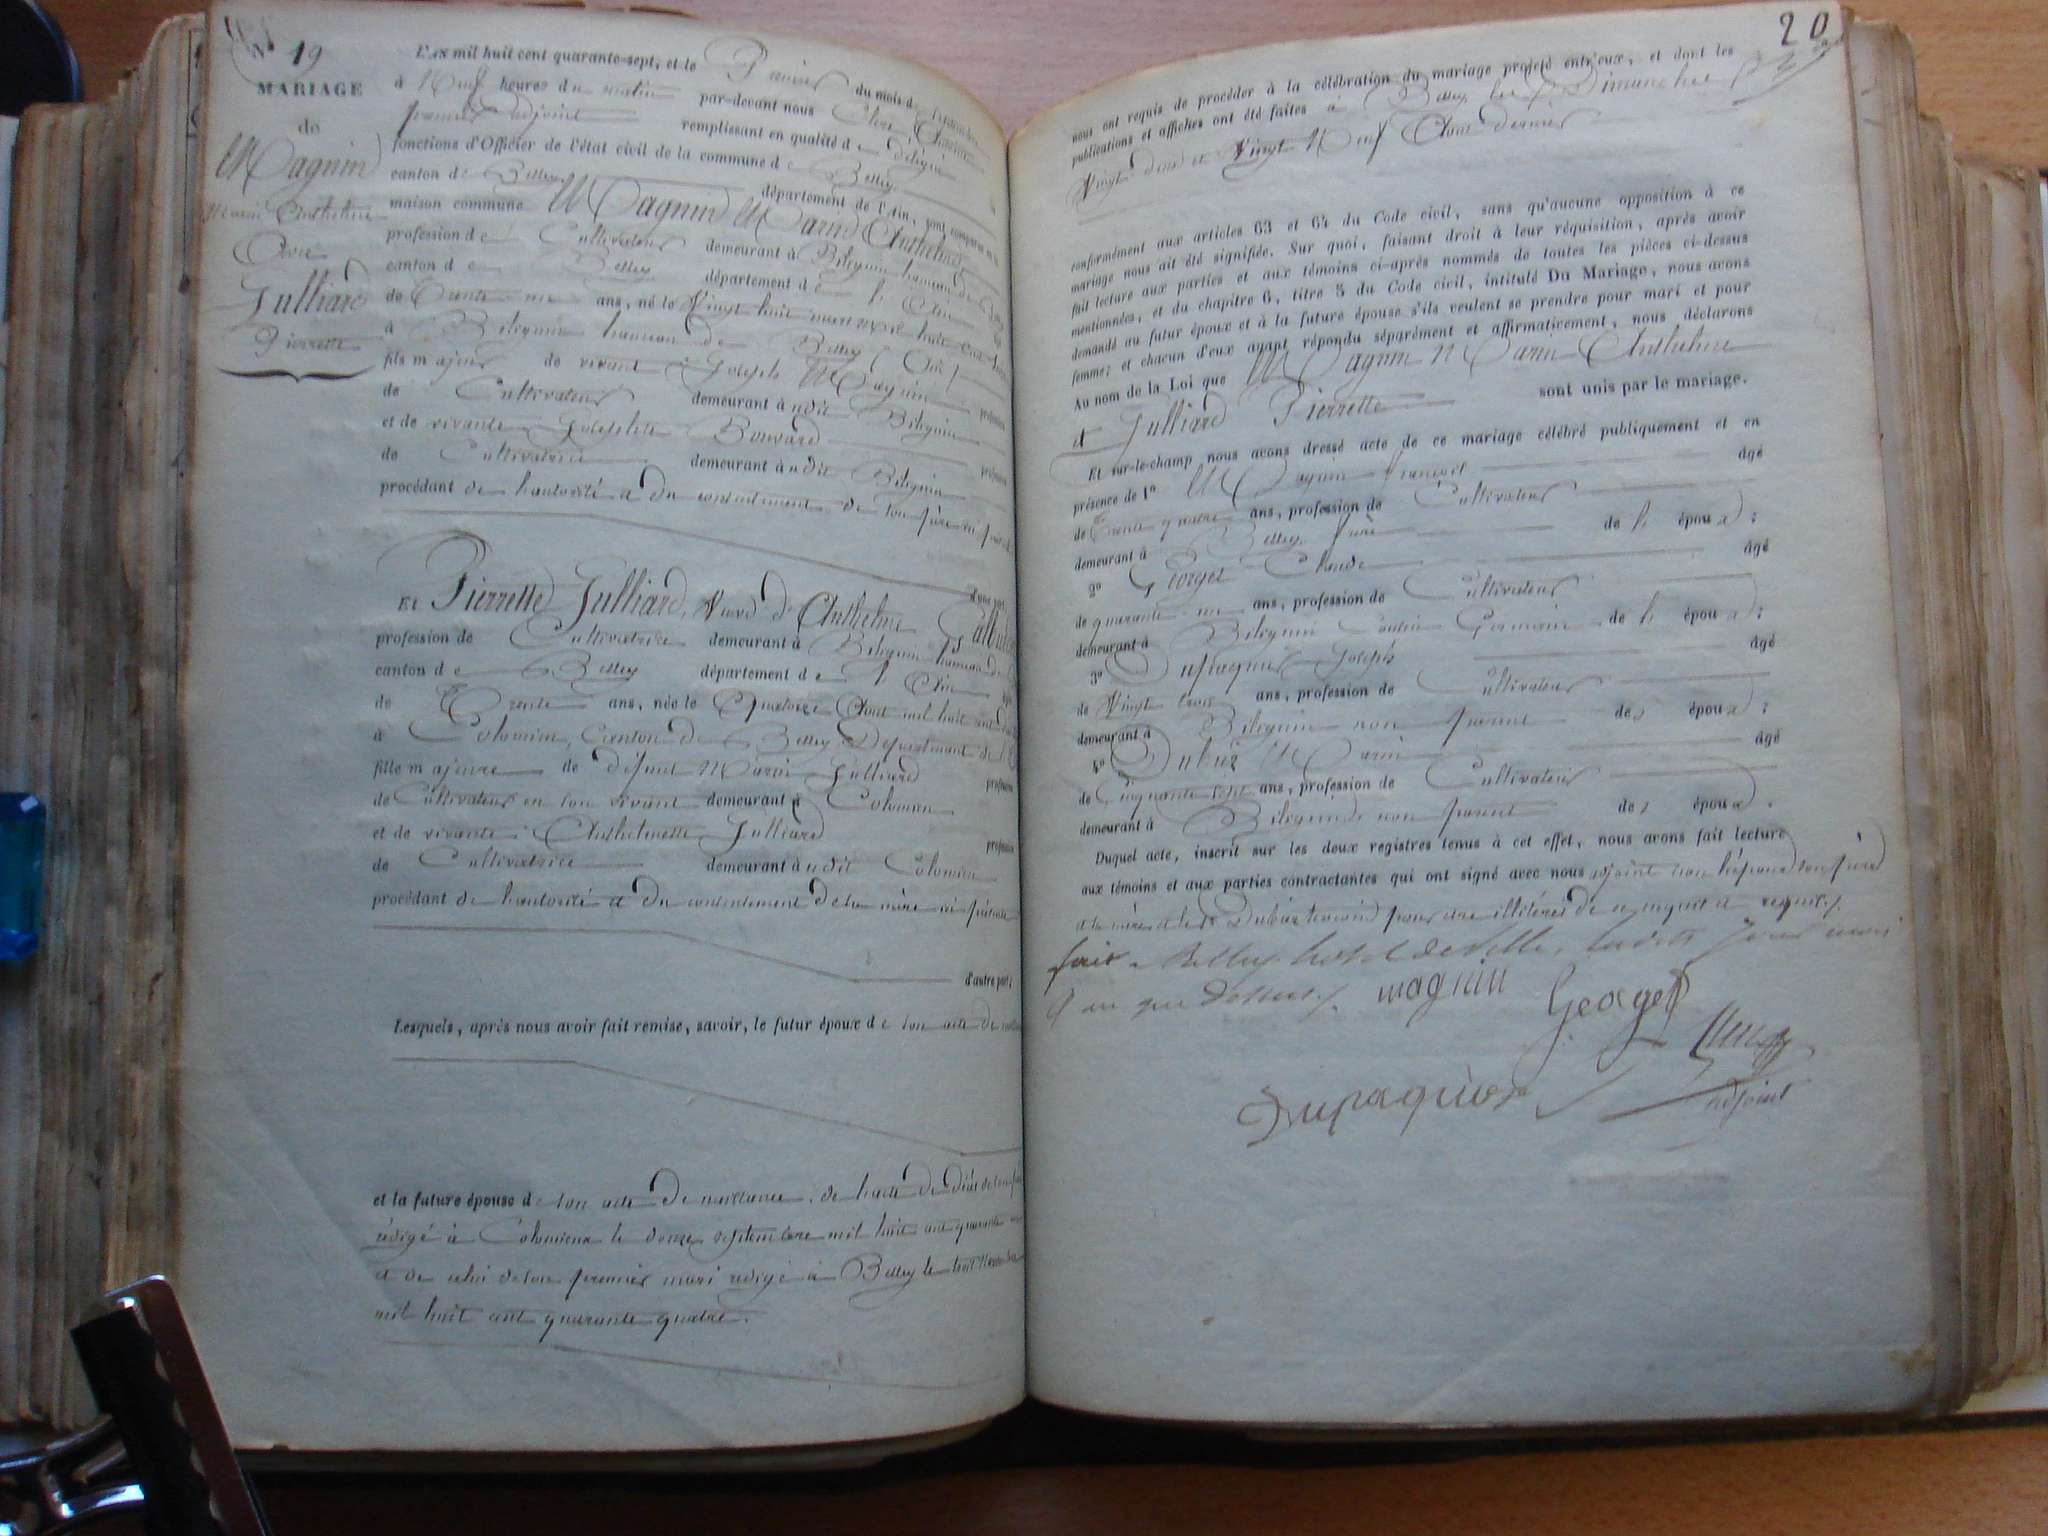 N° 19
MARIAGE
de
Magnin
Marin Anthelme
Avec
Julliard
Pierrette
L'AN mil huit cent quarante-sept, et le Premier du mois de Septembre
à Neuf heures du matin par-devant nous
premier adjoint remplissant en qualité de Délégué
fonctions d'Officier de l'état civil de la commune de Belley
canton de Belley département de l'Ain, sont comparus en la
maison commune Magnin Marin Anthelme
profession de Cultivateur demeurant à Bilignin hameau de
canton de Belley département de l'Ain
de Trente un ans, né le Vingt huit mars mil huit cent
à Bilignin hameau de Belley (Ain)
fils majeur de vivant Joseph Magnin profession
de Cultivateur demeurant à udit Bilignin
et de vivante Josephte Bouvard profession
de Cultivatrice demeurant à udit Bilignin
procédant de l'autorité et du consentement de son père ici présent
d'une part;
Et Pierrette Julliard, Veuve d'Anthelme
profession de Cultivatrice demeurant à Bilignin hameau de
canton de Belley département de l'Ain
de Trente ans, née le Quatorze Aout mil huit cent
à Colomieu, Canton de Belley Département de l'
fille majeure de défunt Marin Julliard profession
de Cultivateur en son vivant demeurant à Colomieu
et de vivante Anthelmette Julliard profession
de Cultivatrice demeurant à udit Colomieu
procédant de l'autorité et du consentement de sa mère ici présente
d'autre part;
Lesquels, après nous avoir fait remise, savoir, le futur époux de son acte de
et la future épouse de son acte de naissance, de l'acte de décès de son
rédigé à Colomieu le douze septembre mil huit cent quarante
et de celui de son premier mari rédigé à Belley le trois Novembre
mil huit cent quarante quatre.
20
nous ont requis de procéder à la célébration du mariage projeté entr'eux, et dont les
publications et affiches ont été faites à Belley les Dimanches
Vingt deux et Vingt Neuf Aout dernier
conformément aux articles 63 et 64 du Code civil, sans qu'aucune opposition à ce
mariage nous ait été signifiée. Sur quoi, faisant droit à leur réquisition, après avoir
fait lecture aux parties et aux témoins ci-après nommés de toutes les pièces ci-dessus
mentionnées, et du chapitre 6, titre 5 du Code civil, intitulé Du Mariage, nous avons
demandé au futur époux et à la future épouse s'ils veulent se prendre pour mari et pour
femme; et chacun d'eux ayant répondu séparément et affirmativement, nous déclarons
Au nom de la Loi que Magnin Marin Anthelme
et Julliard Pierrette sont unis par le mariage.
Et sur-le-champ nous avons dressé acte de ce mariage célébré publiquement et en
présence de 1° Magnin françois âgé
de Trente quatre ans, profession de Cultivateur
demeurant à Belley frère de l'époux;
2° Georges Claude âgé
de quarante un ans, profession de Cultivateur
demeurant à Bilignin Cousin Germain de l'époux;
3° Dupasquier Joseph âgé
de Vingt trois ans, profession de Cultivateur
demeurant à Bilignin non parent des époux;
4° Dubuis Marin âgé
de Cinquante sept ans, profession de Cultivateur
demeurant à Bilignin non parent des époux.
Duquel acte, inscrit sur les deux registres tenus à cet effet, nous avons fait lecture
aux témoins et aux parties contractantes qui ont signé avec nous adjoint non l'épouse son père
et sa mère et le dit Dubuis témoin pour être illitérés de ce enquis et requis
fait à Belley hotel de Ville, les dits jour mois
et an que dessus. magnin Georges
Dupaquier
adjoint